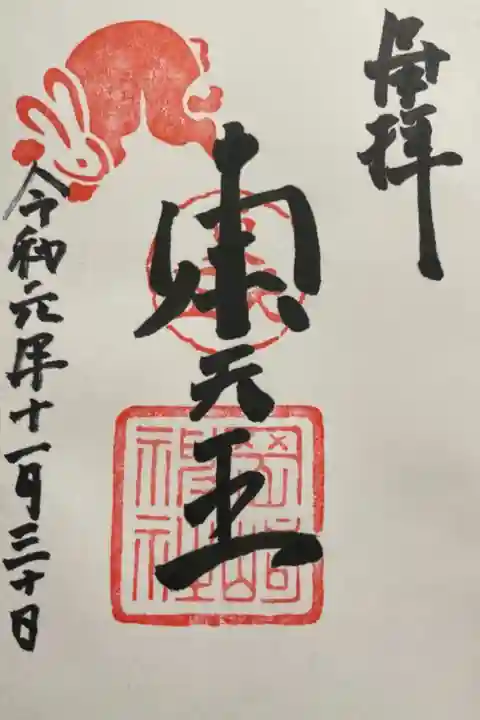 奉拝
東天王
岡崎神社
令和元年十一月三十日